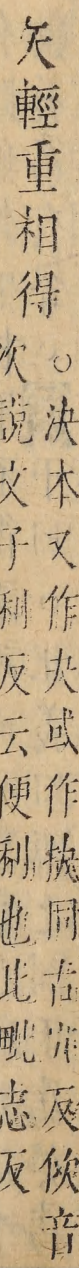 矢輕重相得○
決本又作夬或作抉同古穴反佽音
次說文子利反云便利也此毗志反